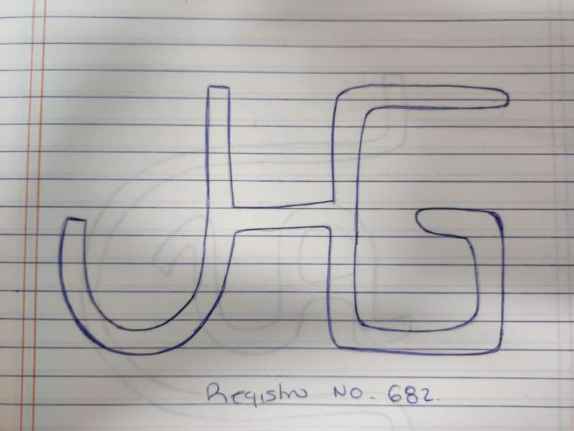 JHG
Registro No. 682.